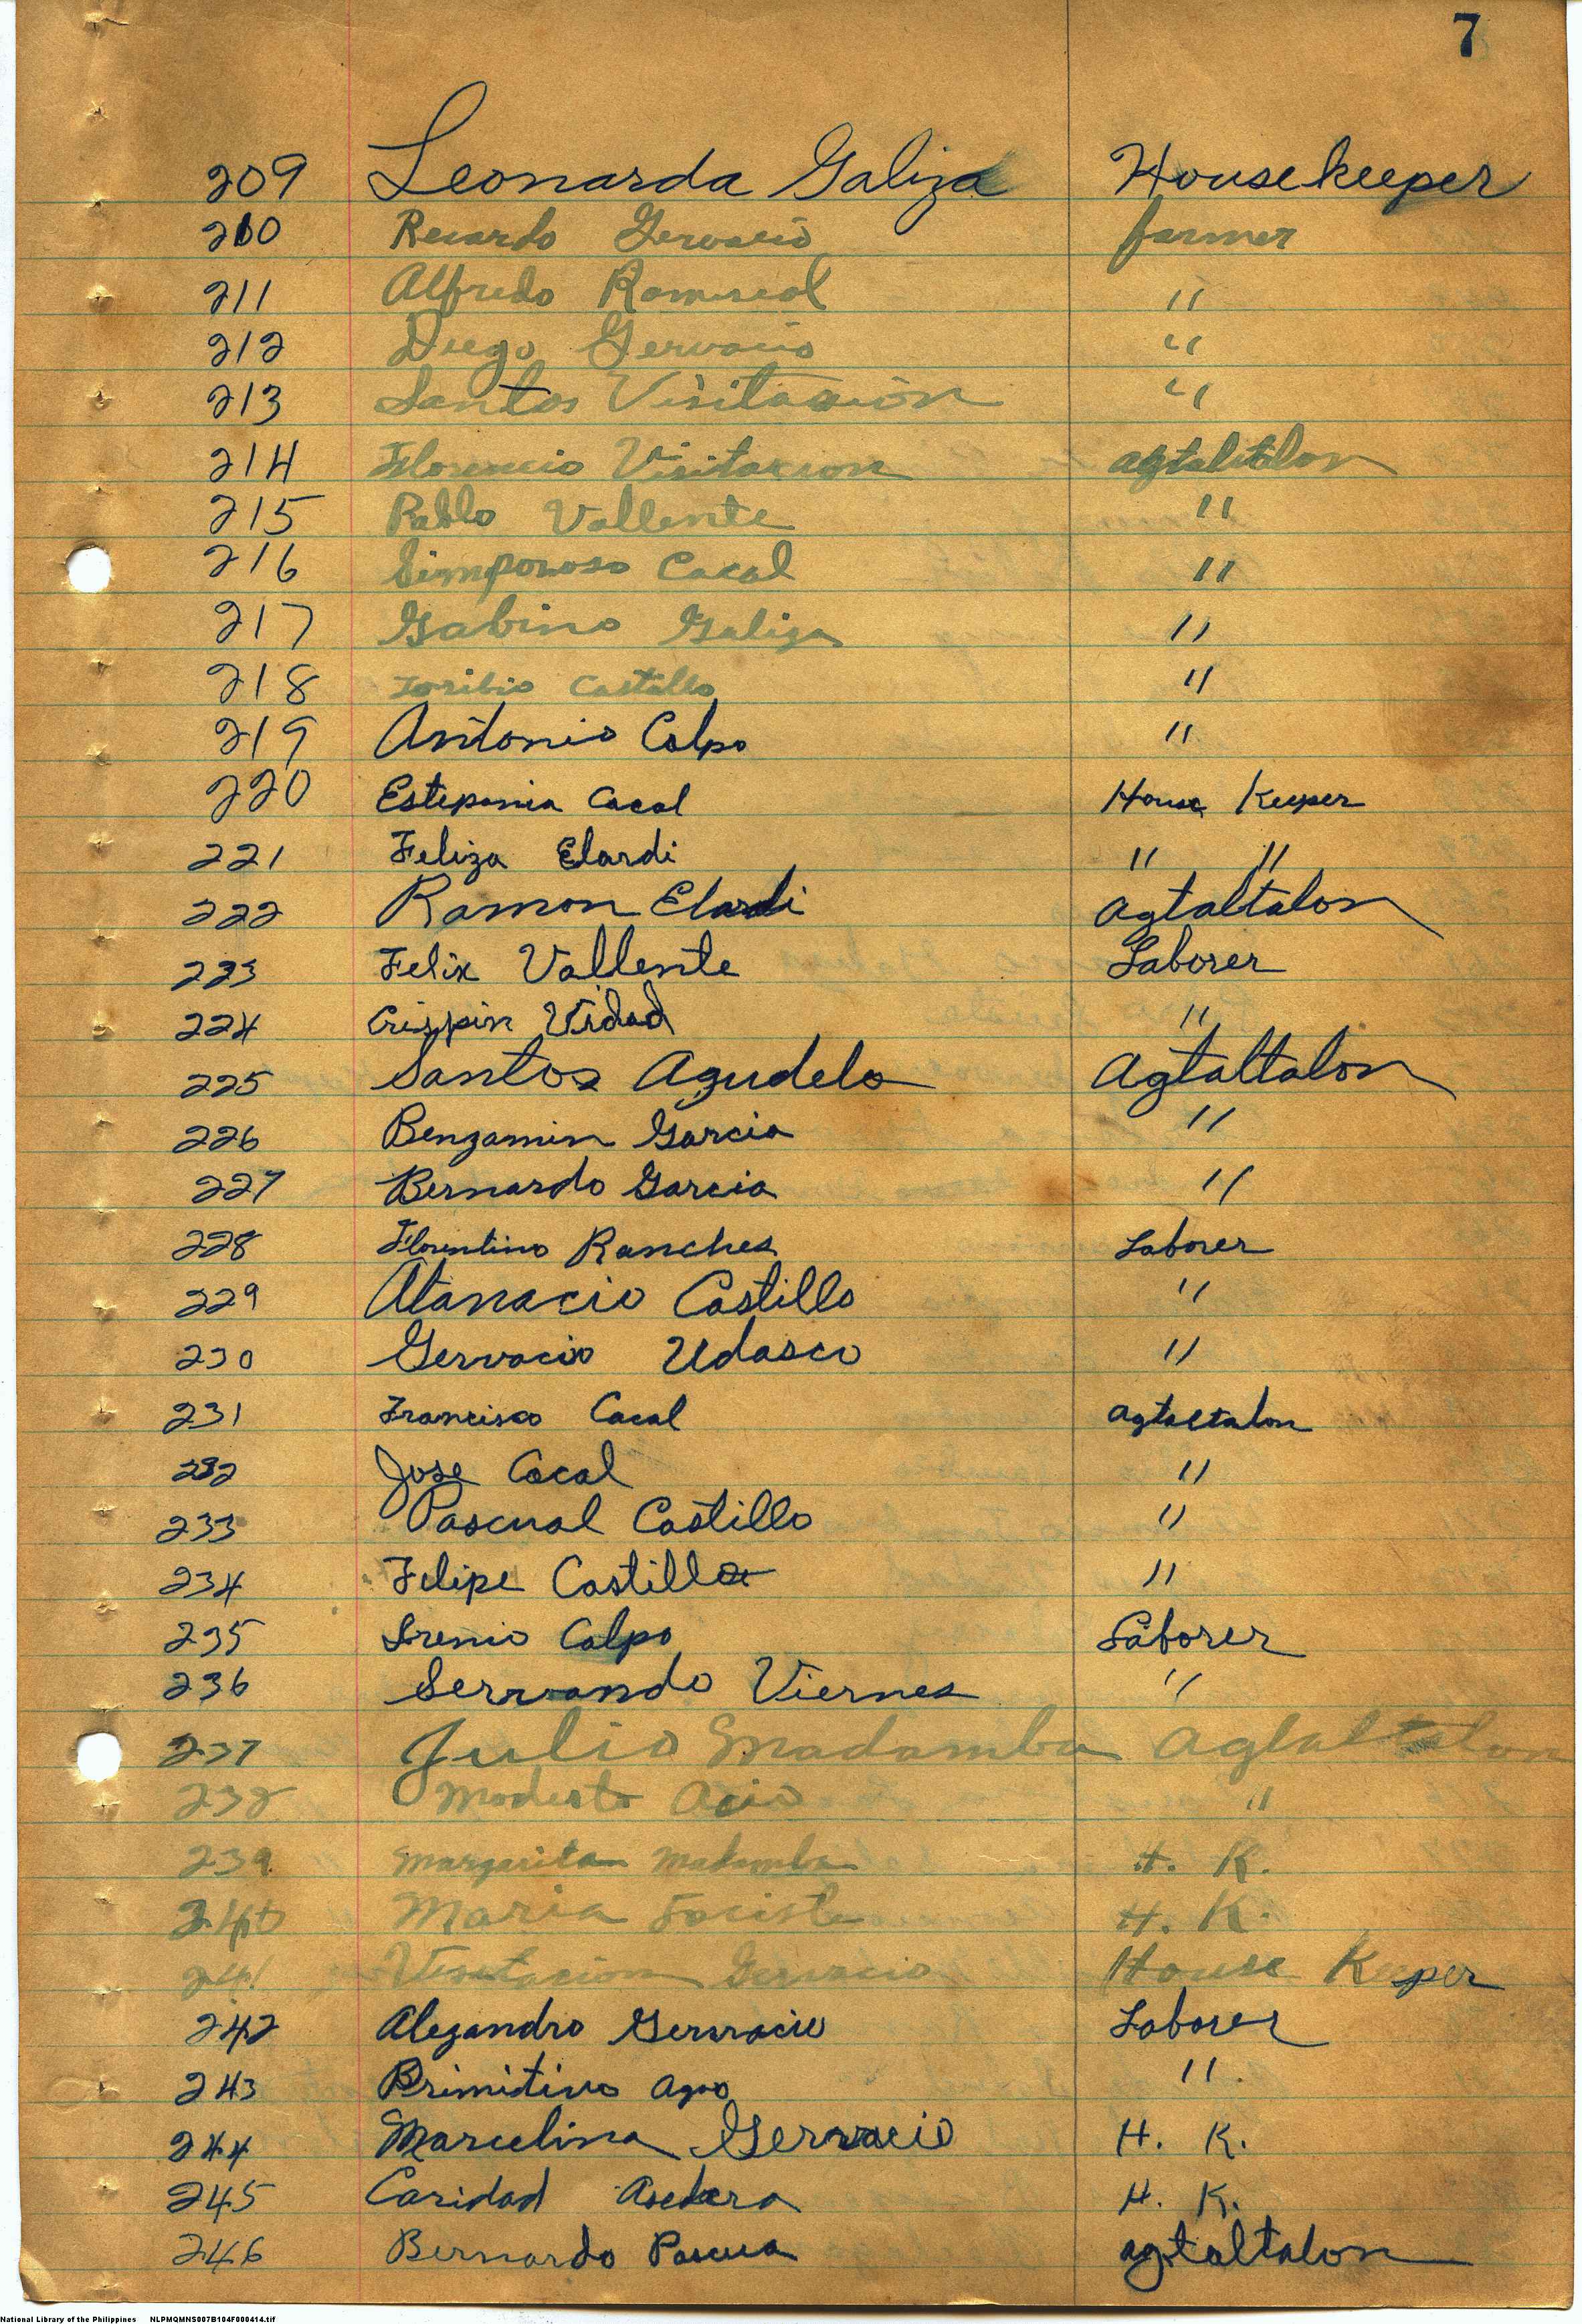 7
209 Leonarda Galiza Housekeeper
210 Recardo Gervacio farmer
211 Alfredo Ramiscal "
212 Diego Gervacio "
213 Santos Visitacion "
214 Florencio Visitacion agtaltalon
215 Pablo Vallente "
216 Simporoso Cacal "
217 Gabino Galiza "
218 Toribio Castillo "
219 Antonio Calpo "
220 Estepania Cacal House Keeper
221 Feliza Elardi " "
222 Ramon Elardi agtaltalon
223 Felix Vallente Laborer
224 Crispin Vidad "
225 Santos Agudelo Agtaltalon
226 Benjamin Garcia "
227 Bernardo Garcia "
228 Florentino Ranches Laborer
229 Atanacio Castillo "
230 Gervacio Udasco "
231 Francisco Cacal agtaltalon
232 Jose Cacal "
233 Pascual Castillo "
234 Felipe Castillo "
235 Irenio Calpo Laborer
236 Servando Viernes "
237 Julio Madamba Agtaltalon
238 Modesto Acio "
239 Margarita Madamba H. K.
240 Maria H. K.
241 Visitacion Gervacio House Keeper
242 Alejandro Gervacio Laborer
243 Primitivo Agno "
244 Marcelina Gervacio H. K.
245 Caridad Asedera H. K.
246 Bernardo Pascua agtaltalon
National Library of the Philippines NLPMQMNS007B104F000414.tif